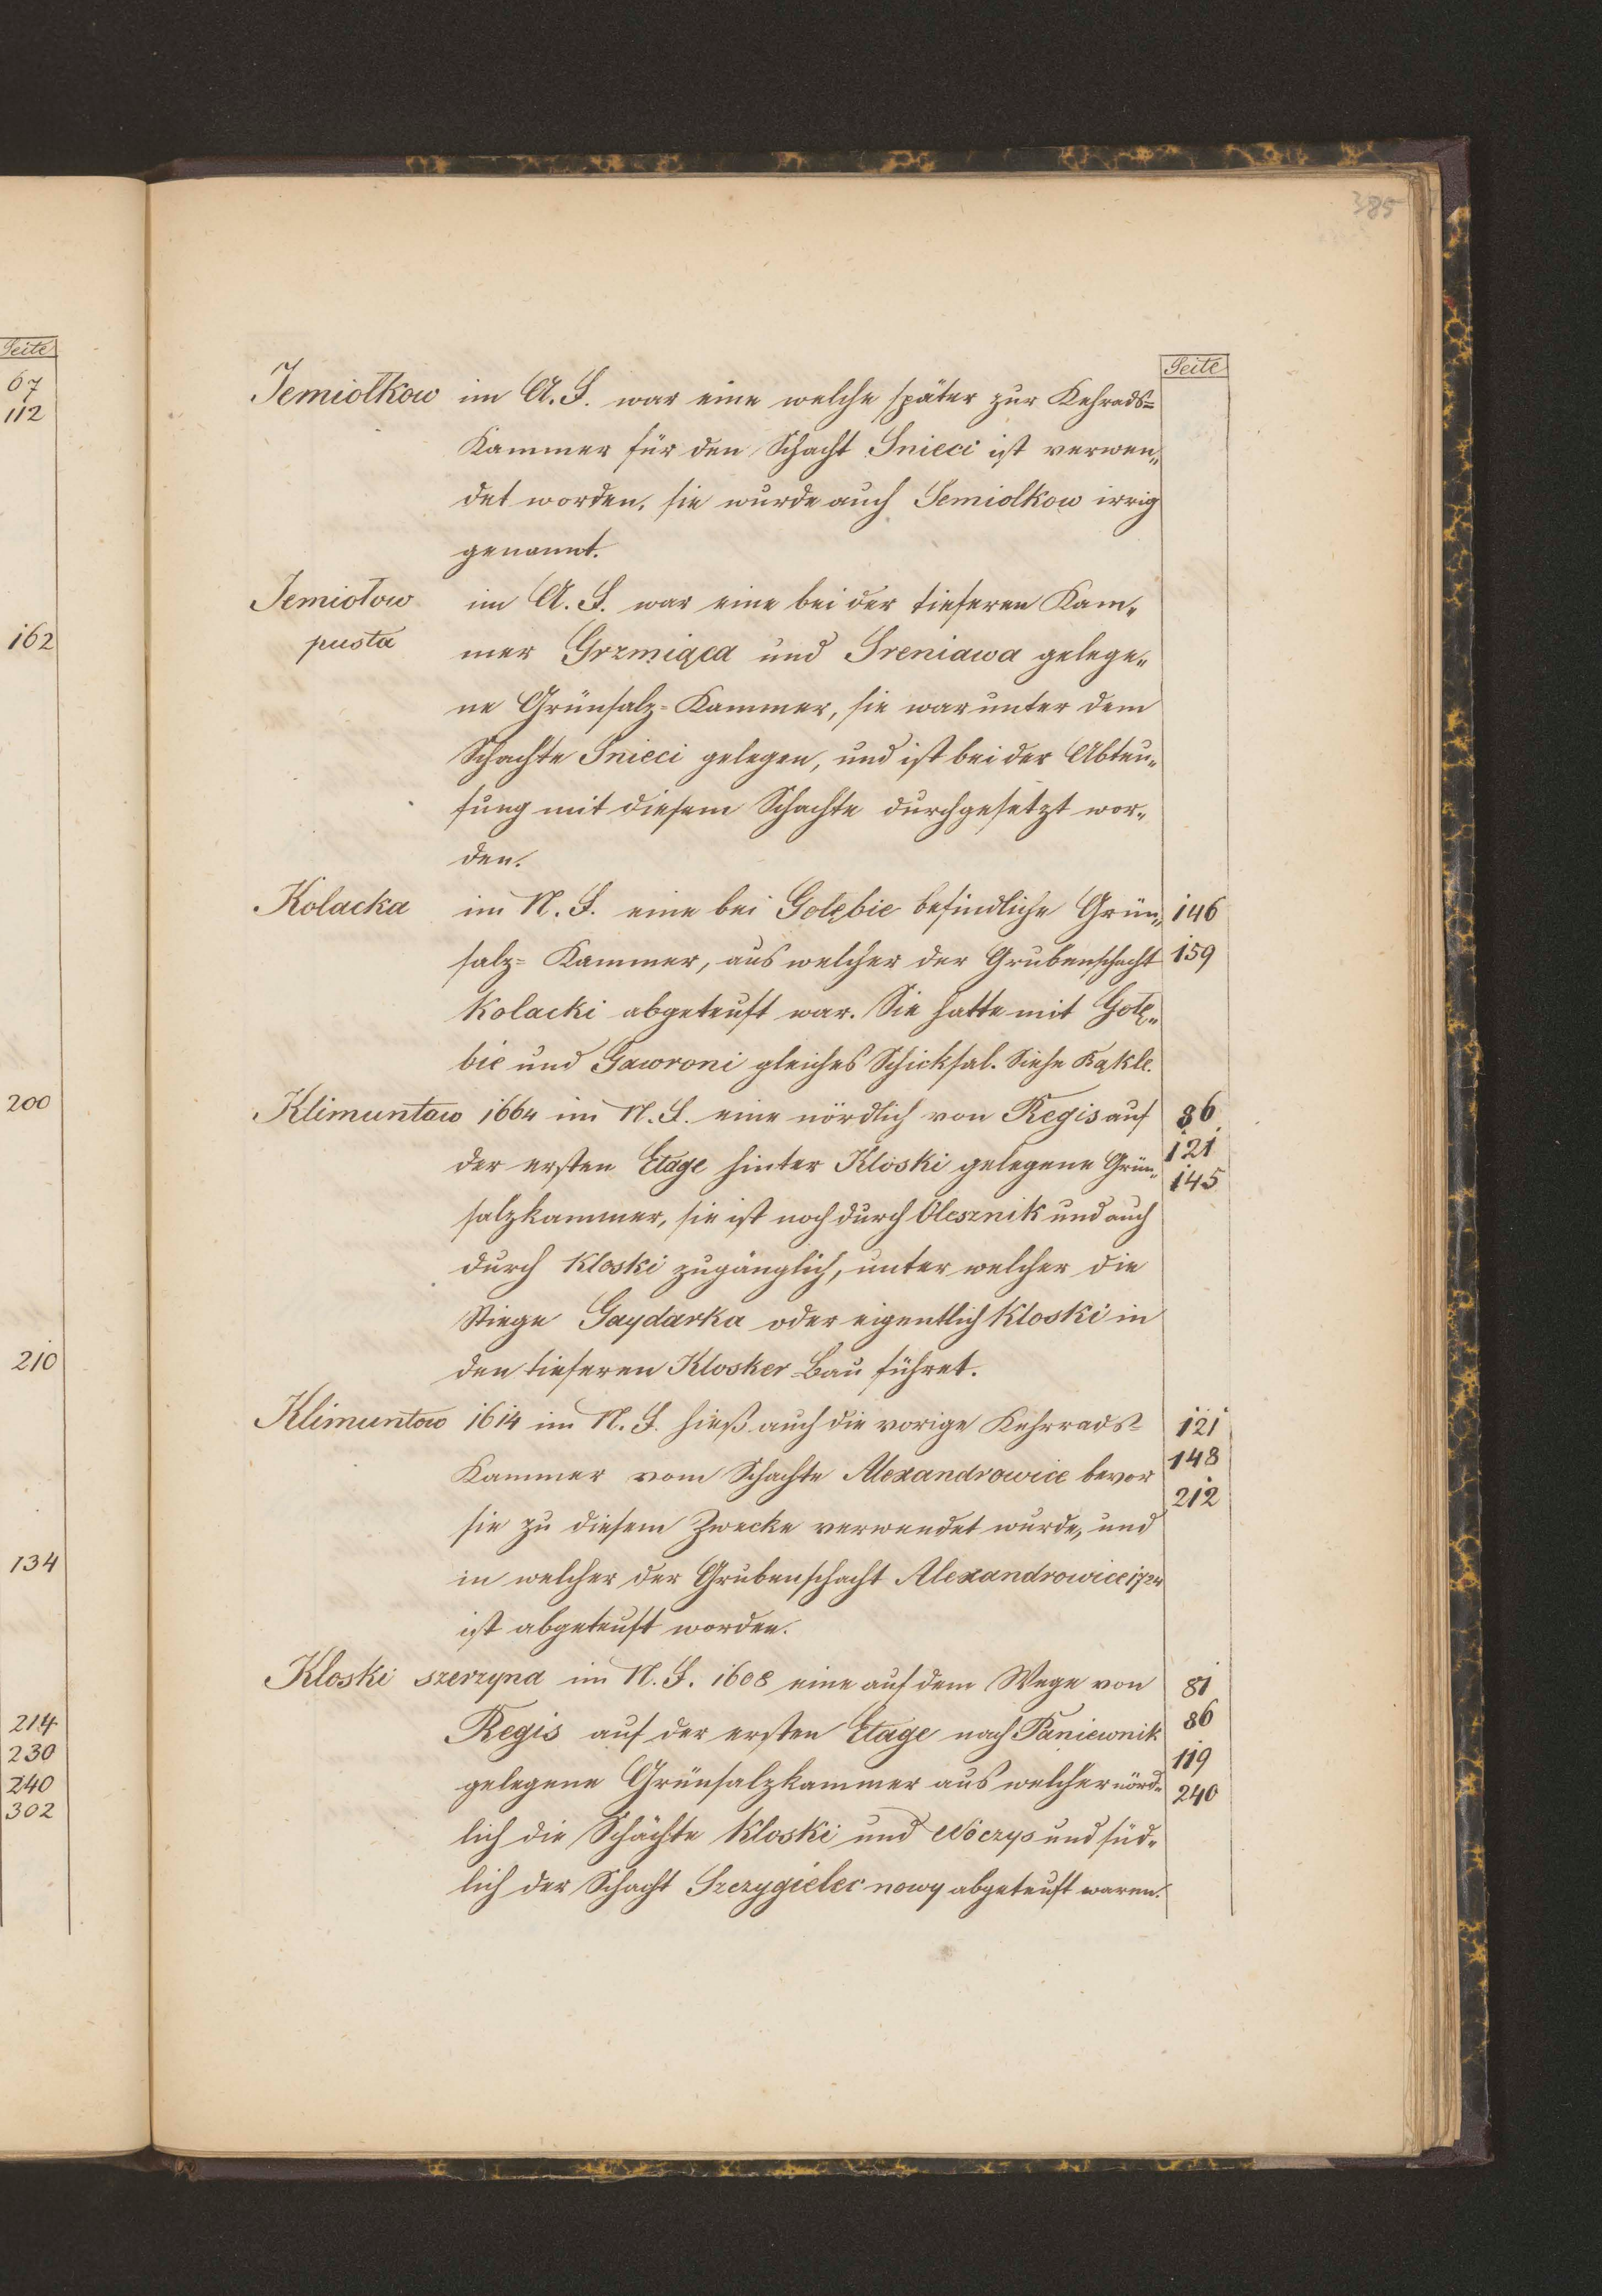 Seite
67
112
162
200
210
134
214
230
240
302
385
Seite
Jemiolkow im A. F. war eine welche später zur Kehrads=
Kammer für den Schacht Snieci ist verwen„
det worden, sie wurde auch Semiolkow irrig
genannt.
Jemiołow im A. F. war eine bei der tieferen Kam„
pusta mer Grzmiąca und Sreniawa gelege„
ne Grünsalz=Kammer, sie war unter dem
Schachte Snieci gelegen, und ist bei der Abteu„
fung mit diesem Schachte durchgesetzt wor„
den.
Kolacka im N. F. eine bei Gołębie befindliche Grün„ 146
salz=Kammer, aus welcher der Grubenschacht 159
Kolacki abgeteuft war. Sie hatte mit Gołę„
bie und Gawroni gleiches Schicksal. Siehe Bąkle.
Klimuntow 1664 im N. F. eine nördlich von Regis auf 86
der ersten Etage hinter Kloski gelegene Grün„ 121
145
salzkammer, sie ist noch durch Olesznik und auch
durch Kloski zugänglich, unter welcher die
Stiege Gaydarka oder eigentlich Kloski in
den tieferen Klosker Bau führet.
Klimuntow 1614 im N. F. hieß auch die vorige Kehrrads= 121
Kammer vom Schachte Alexandrowice bevor 148
212
sie zu diesem Zwecke verwendet wurde, und
in welcher der Grubenschacht Alexandrowice 1724
ist abgeteuft worden.
Kloski szerzyna im N. F. 1608 eine auf dem Wege von 81
Regis auf der ersten Etage nach Paniewnik 86
119
gelegene Grünsalzkammer aus welcher nörd„ 240
lich die Schächte Kloski und Wóczys und süd„
lich der Schacht Szczygielec nowy abgeteuft waren.